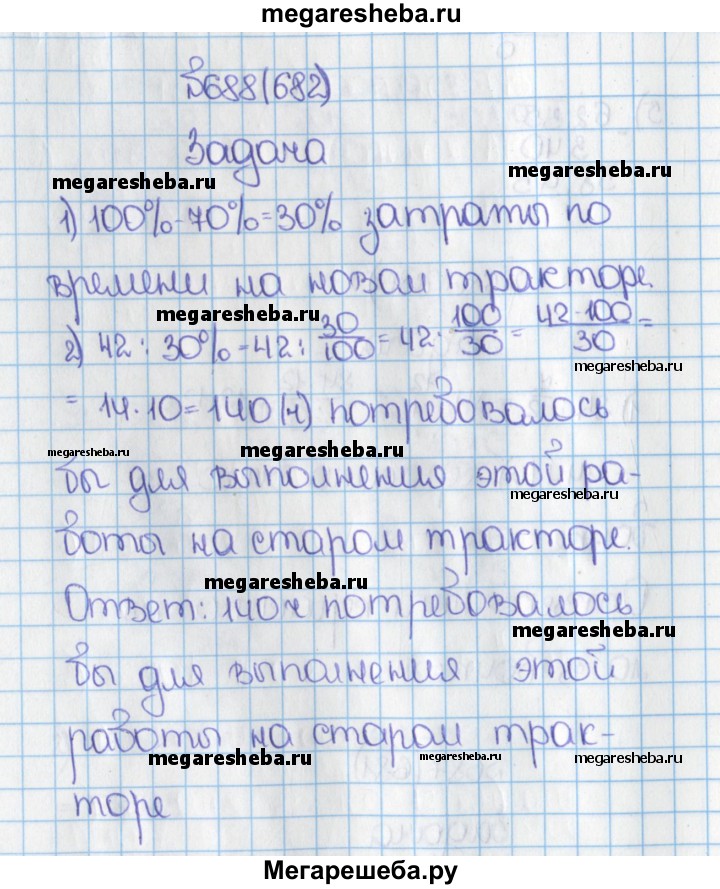 megaresheba.ru
№688(682)
Задача
megaresheba.ru
megaresheba.ru
1) 100%-70%=30% затраты по
времени на новом тракторе.
megaresheba.ru
2) 42 : 30% = 42 : 30/100 = 42 · 100/30 = 42·100/30 =
megaresheba.ru
= 14·10=140(ч) потребовалось
megaresheba.ru
megaresheba.ru
бы для выполнения этой ра-
megaresheba.ru
боты на старом тракторе.
megaresheba.ru
Ответ: 140ч потребовалось
megaresheba.ru
бы для выполнения этой
работы на старом трак-
megaresheba.ru
megaresheba.ru
торе
Мегарешеба.ру